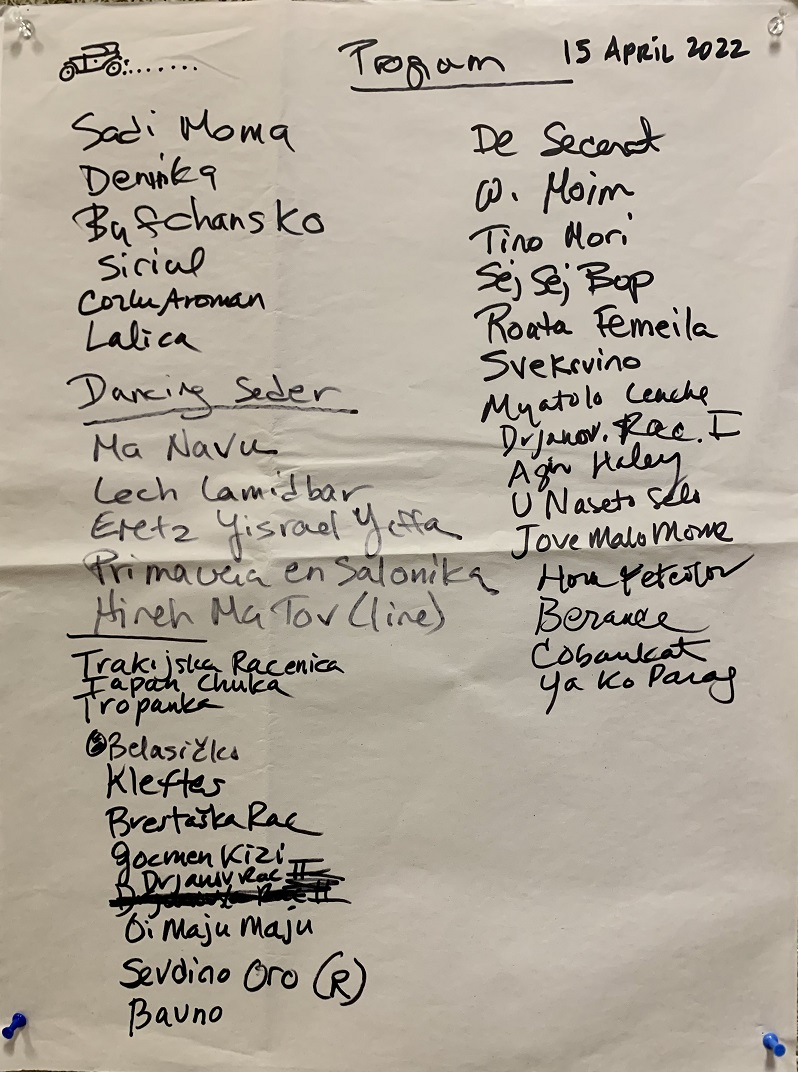 Program 15 April 2022
Sadi Moma
Deninka
Bufchansko
Siriul
Corlu Aroman
Lalica
Dancing Seder
Ma Navu
Lech Lamidbar
Eretz Yisrael Yaffa
Primavera en Salonika
Hineh Ma Tov (line)
Trakijska Racenica
Tapan Chuka
Tropanka
Belasičko
Kleftes
Brestaška Rac
Gocmen Kizi
Drjanov Rac II
Oi Maju Maju
Sevdino Oro (R)
Bavno
De Secerat
W. Moim
Tino Mori
Sej Sej Bop
Roata Femeila
Svekrvino
Myatolo Lenche
Drjanov. Rac. I
Agir Haley
U Naseto Selo
Jove Malo Mome
Hora
Berance
Cobankat
Ya Ko Paraq